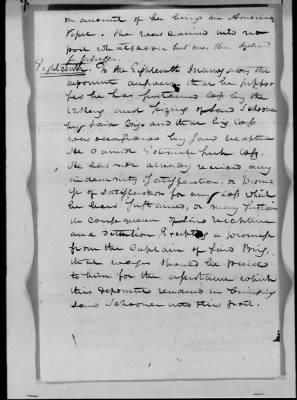 on account of her being an American
Vessel. The was carried into no
port whatsoever but
Eighteenth. To the Eighteenth Interrogatory the
deponent answers that he suppo-
ses he has sustained loss by the
taking and seizing of said Schooner
by said Brig and that his loss
was occasioned by said capture
He cannot Estimate such loss.
He has not already received any
indemnity Satisfaction, or prom-
ise of satisfaction for any loss which
he has sustained, or may sustain
in consequence of said capture
and detention Except a promise
from the Captain of said Brig,
that wages should be paid
to him for the assistance which
this deponent renders in bringing
said Schooner into this port.